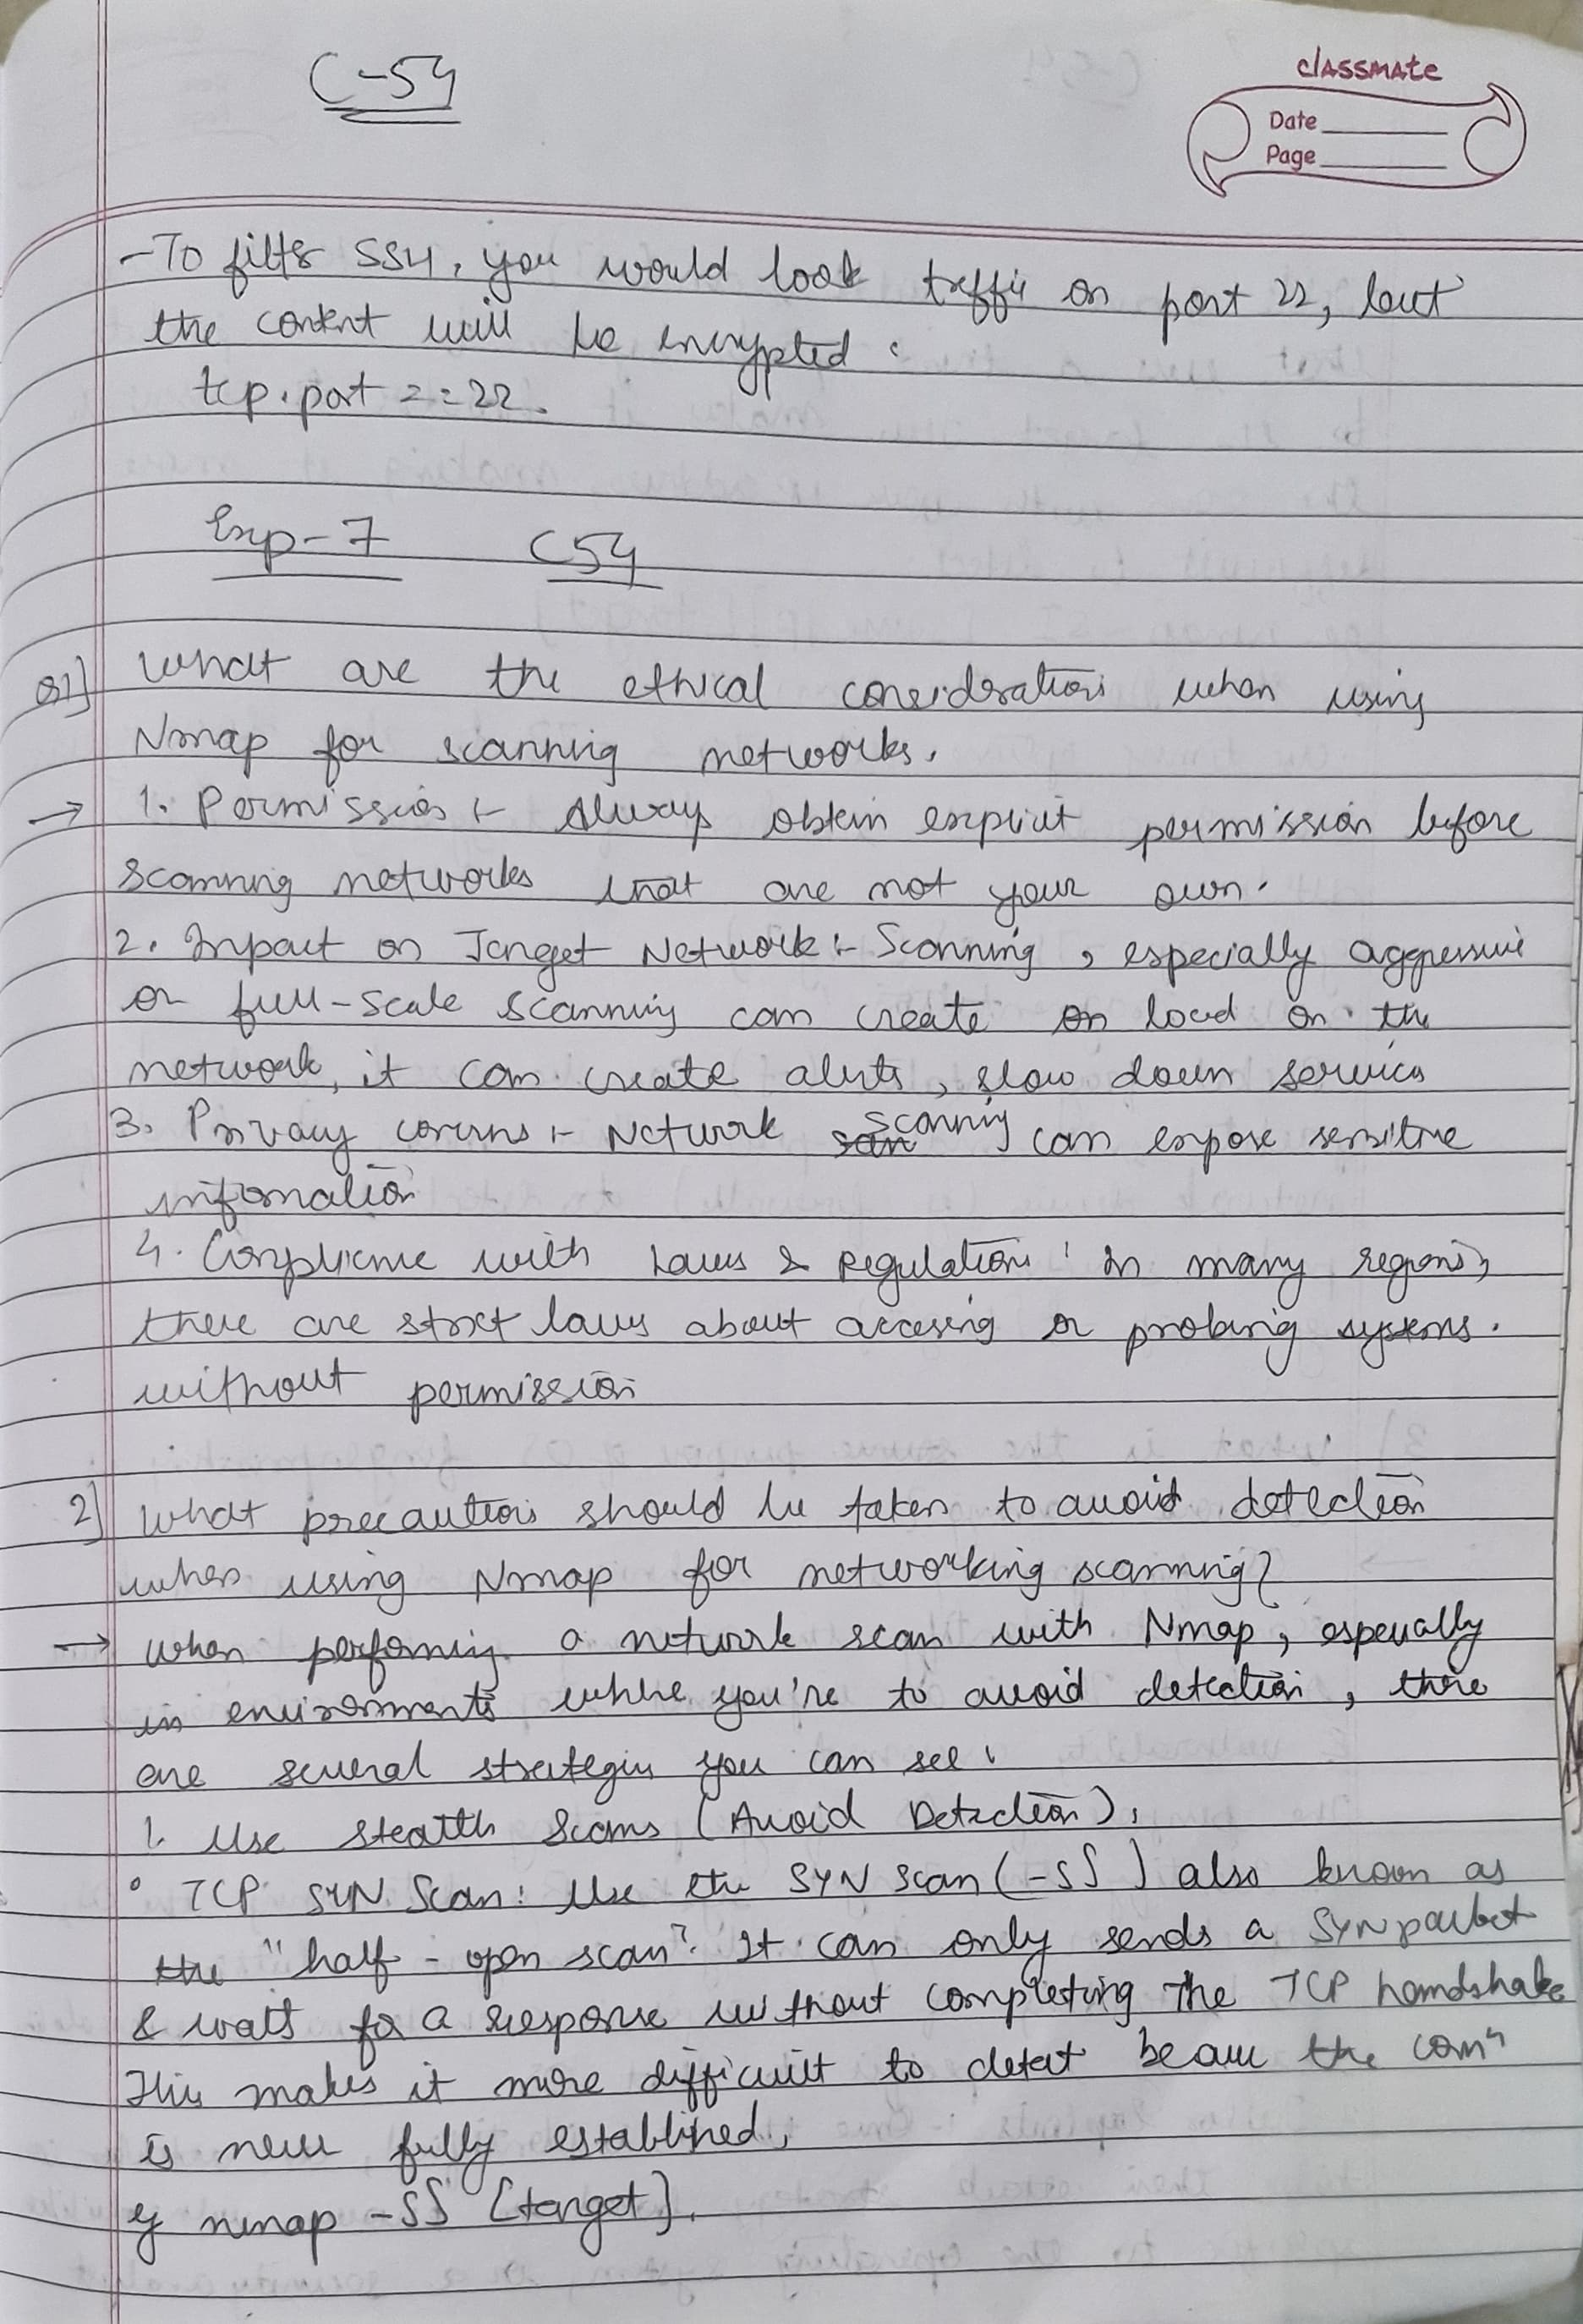 C-54
classmate
Date
Page
-To filter SSH, you would look traffic on port 22, but
the content will be encrypted :
tcp.port == 22.
Exp-7 C54
Q1] What are the ethical considerations when using
Nmap for scanning networks.
→ 1. Permission :- Always obtain explicit permission before
scanning networks that are not your own.
2. Impact on Target Network :- Scanning, especially aggressive
or full-scale scanning can create on load on the
network, it can create alerts, slow down services
3. Privacy concerns :- Network scan scanning can expose sensitive
information
4. Compliance with Laws & Regulations : in many regions,
there are strict laws about accesing or probing systems.
without permission
2] What precautions should be taken to avoid detection
when using Nmap for networking scanning?
→ When performing a network scan with Nmap, especially
in environments where you're to avoid detection, there
are several strategies you can see :
1. Use stealth Scans (Avoid Detection),
° TCP SYN Scan : Use the SYN scan (-sS) also known as
the "half-open scan". It can only sends a SYN packet
& waits for a response without completing the TCP handshake
This makes it more difficult to detect because the comⁿ
is never fully established,
eg nmap -sS [target].